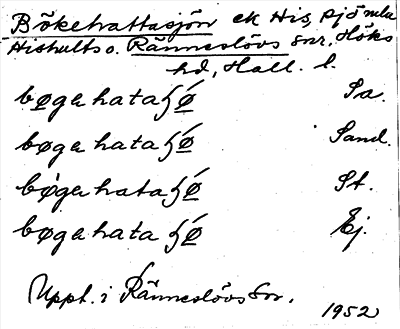 Bökehattasjön ek His, Sjömla
Hishults o. Ränneslövs snr, Höks
hd, Hall. l.
bøgahataʃǿ Sa.
bøgahataʃǿ Sand.
bøgahataʃǿ St.
bøgahataʃǿ Ej.
Uppt. i Ränneslövs sn.
1952